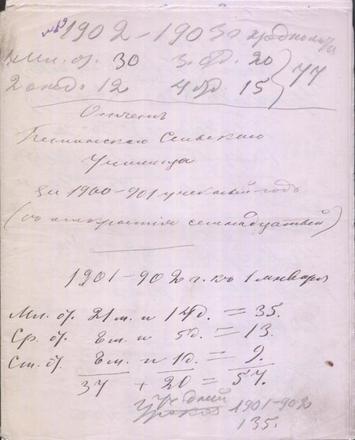 №2
1902-1903 г.
Мл. от. 30 3 от. 20
2 отд. 12 4 от. 15 } 77
Отчетъ
Сельскаго
Училища
за 1900-901 учебный годъ
(со открытія семнадцатый)
1901-902 г. къ 1 января
Мл. от. 21 м. и 14 д. = 35.
Ср. от. 8 м. и 5 д. = 13.
Ст. от. 8 м. и 1 д. = 9.
37 + 20 = 57.
Уч. дней
1901-902
135.